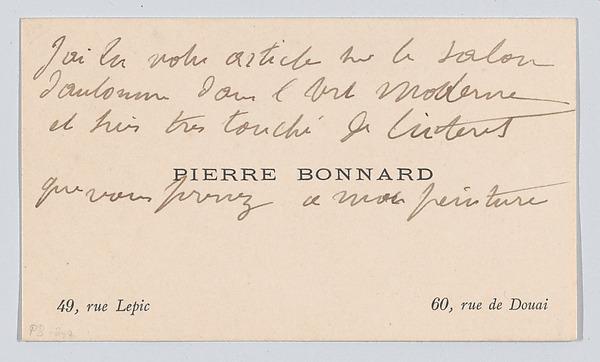 J'ai lu votre article sur le salon
d'automne dans l'Art Moderne
et suis très touché de l'interet
PIERRE BONNARD
que vous prenez a ma peinture
49, rue Lepic
60, rue de Douai